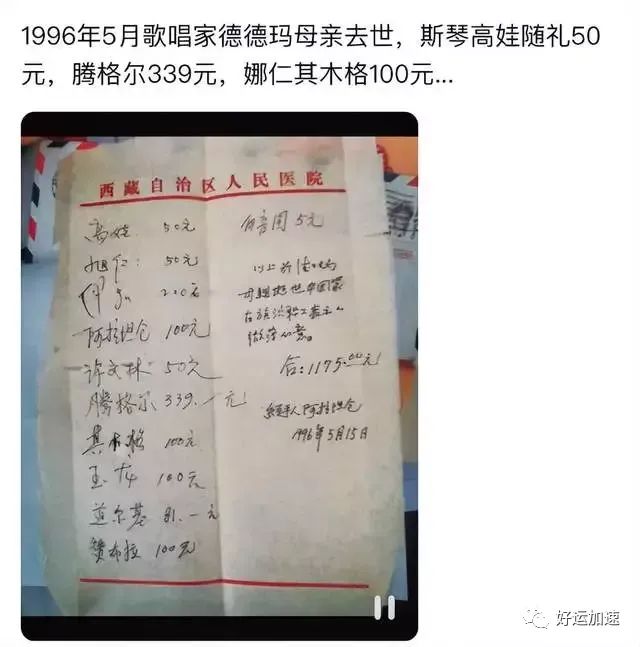 1996年5月歌唱家德德玛母亲去世，斯琴高娃随礼50
元，腾格尔339元，娜仁其木格100元...
西藏自治区人民医院
高娃: 50元
旭仁: 50元
200元
阿拉坦仓 100元
许文林 50元
腾格尔 339.一元
其木格 100元
玉 100元
道尔基 81.一元
布拉 100元
白音 5元
以上为德德玛
母親逝世中国蒙
古族演职工表示的
微薄心意。
合:1175.00元
经手人阿拉坦仓
1996年5月15日
好运加速